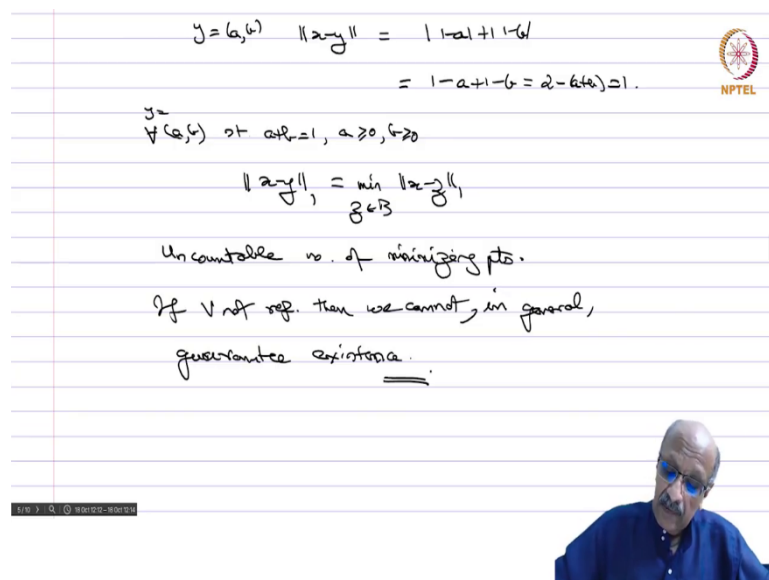 y = (a,b) ||x-y|| = |1-a|+|1-b|
= 1-a+1-b = 2-(a+b) = 1.
NPTEL
y=
∀ (a,b) st a+b=1, a≥0, b≥0
||x-y||₁ = min ||x-z||₁
z∈B
Uncountable no. of minimizing pts.
If V not ref. then we cannot, in general,
guarantee existence.
5/10 18 Oct 12:12 - 18 Oct 12:14